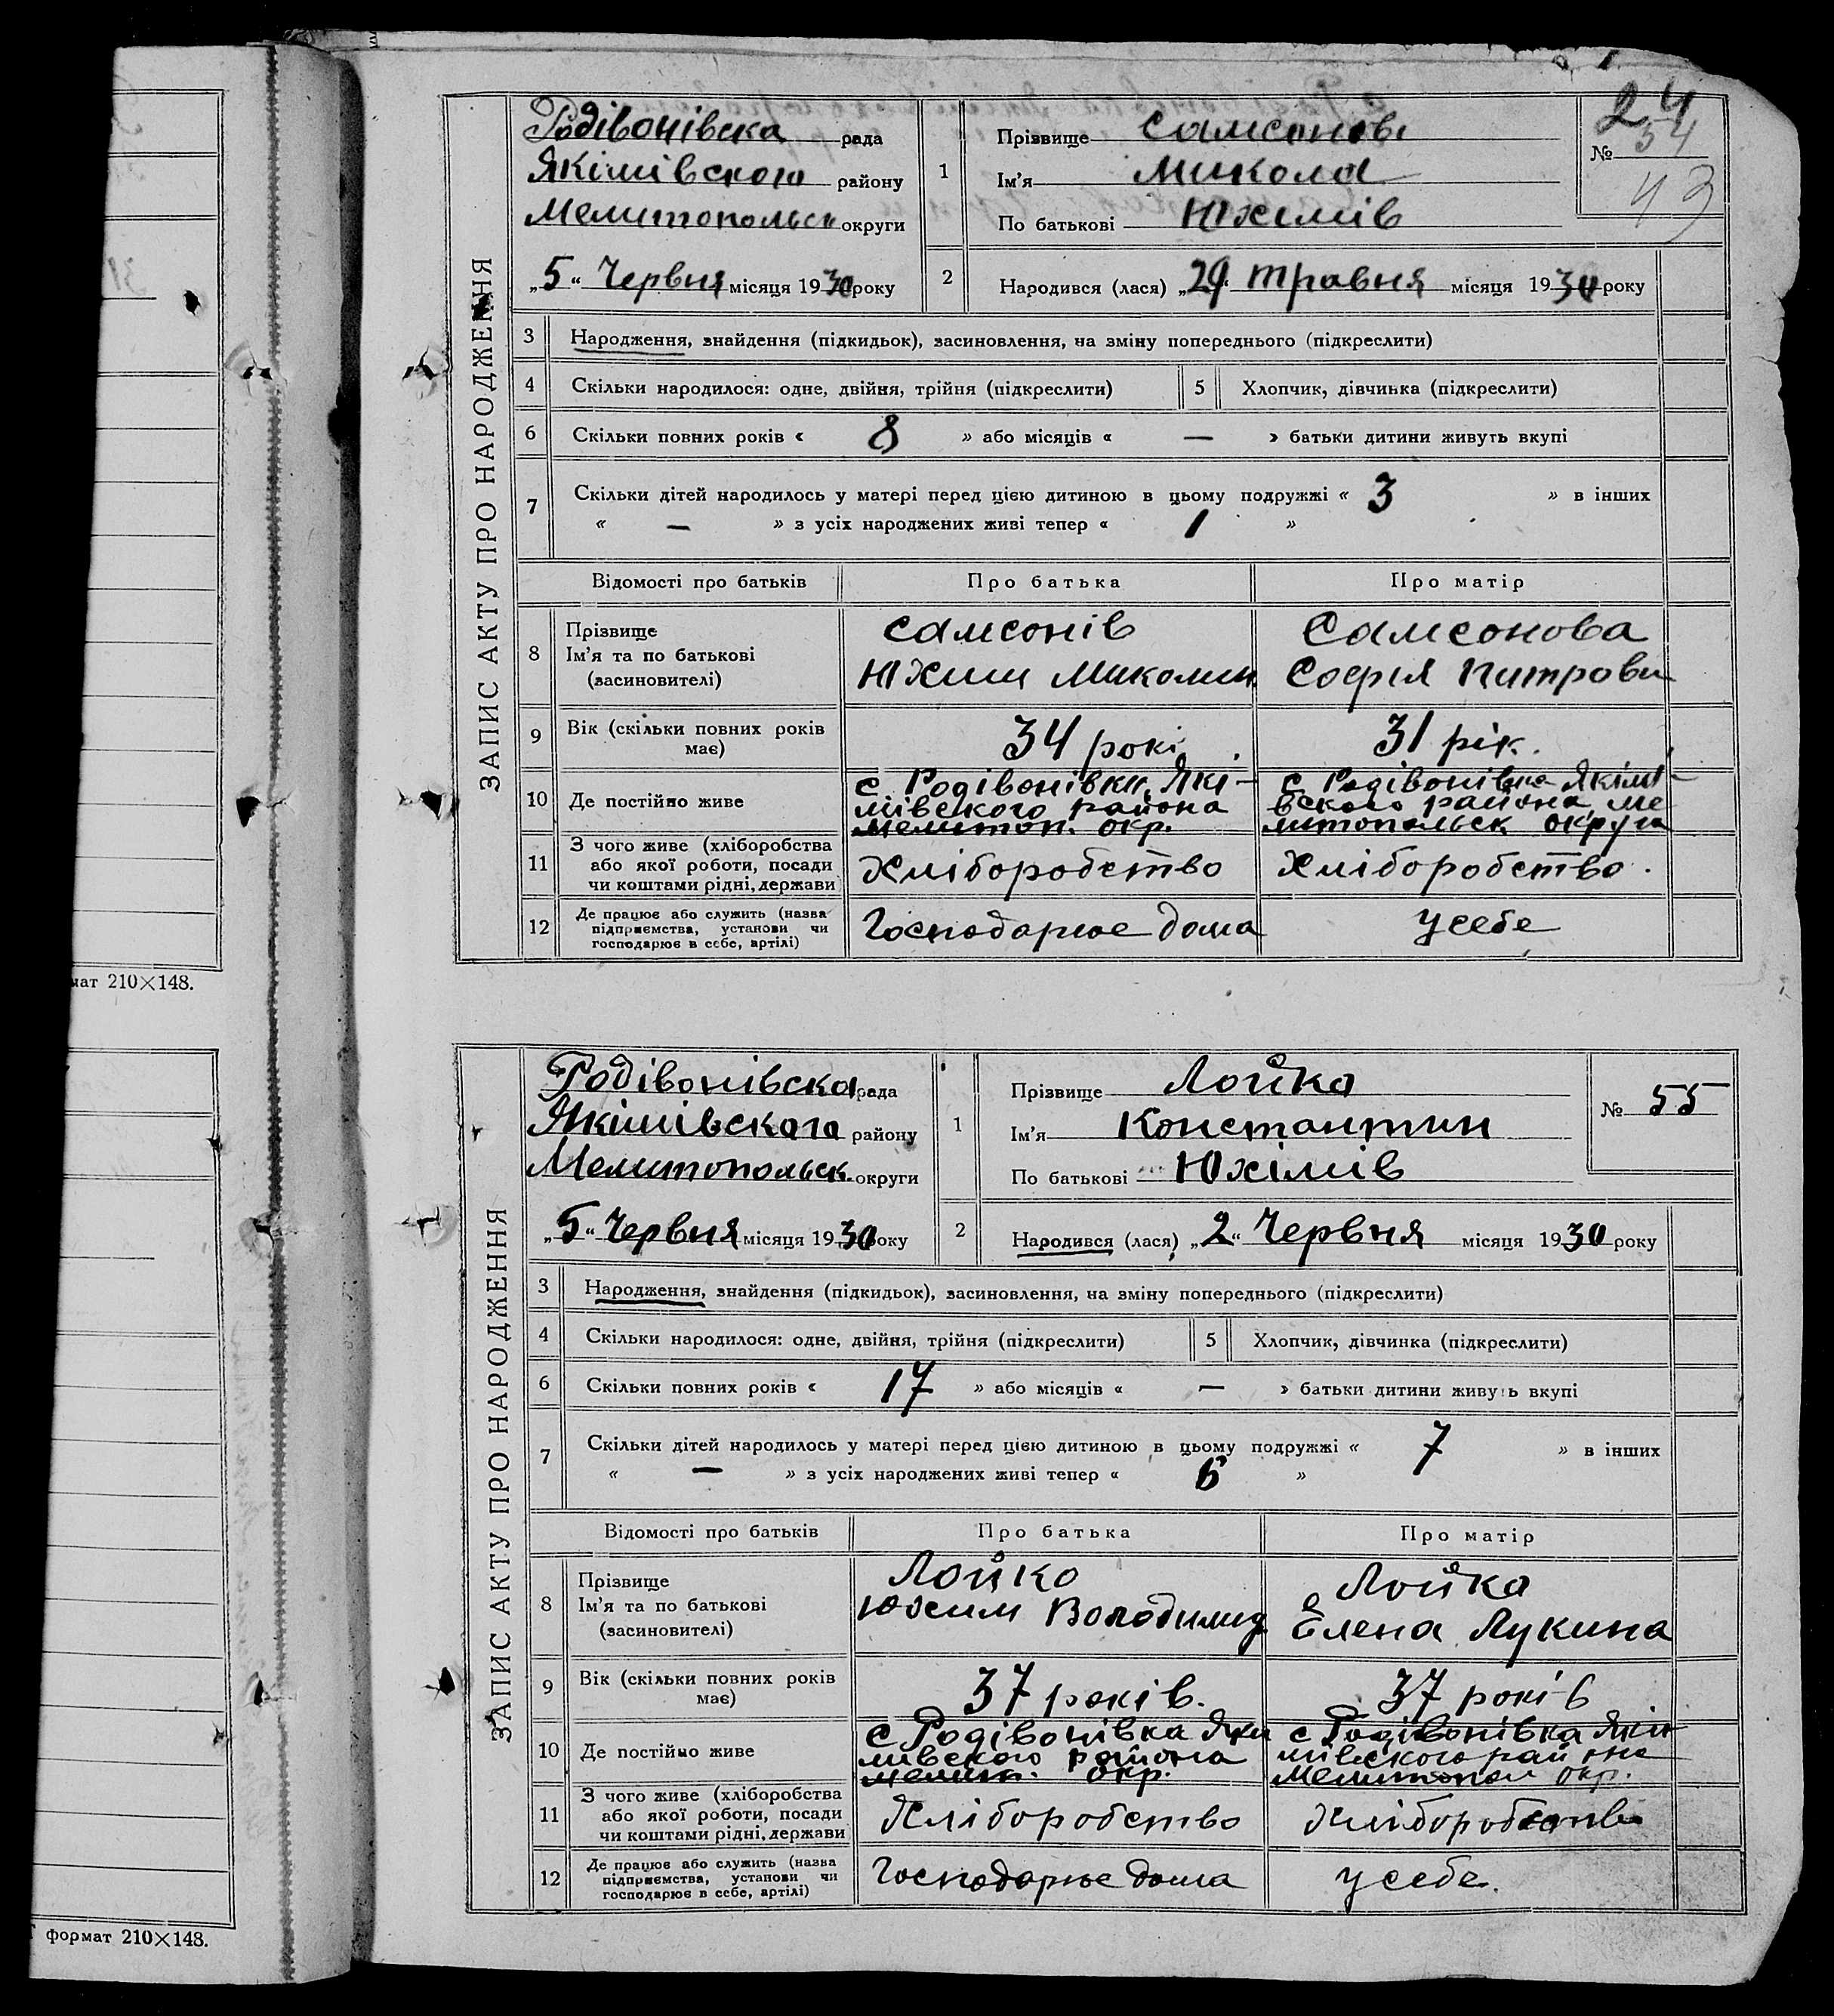 24
ЗАПИС АКТУ ПРО НАРОДЖЕННЯ
Родівонівска рада
Якімівского району
Мелитопольск округи
„5“ Червня місяця 1930 року
1
Прізвище Самсонів
Ім'я Микола
По батькові Юхимів
№ 54
43
2
Народився (лася) „29“ травня місяця 1930 року
3 Народження, знайдення (підкидьок), засиновлення, на зміну попереднього (підкреслити)
4 Скільки народилося: одне, двійня, трійня (підкреслити) 5 Хлопчик, дівчинка (підкреслити)
6 Скільки повних років « 8 » або місяців « — » батьки дитини живуть вкупі
7 Скільки дітей народилось у матері перед цією дитиною в цьому подружжі « 3 » в інших
« — » з усіх народжених живі тепер « 1 »
Відомості про батьків Про батька Про матір
8 Прізвище
Ім'я та по батькові
(засиновителі)
Самсонів
Юхим Миколин
Самсонова
Софія Питрови
9 Вік (скільки повних років
має)
34 рокі
31 рік.
10 Де постійно живе
с Родівонівки Які-
мівского района
мелитоп. окр.
с Родівонівка Якімі-
вского района ме
литопольск округа
11 З чого живе (хліборобства
або якої роботи, посади
чи коштами рідні, держави
Хліборобство
Хліборобство.
12 Де працює або служить (назва
підприємства, установи чи
господарює в себе, артілі)
Господарює дома
у себе
мат 210×148.
ЗАПИС АКТУ ПРО НАРОДЖЕННЯ
Родівонівска рада
Якімівского району
Мелитопольск. округи
„5“ Червня місяця 1930 року
1
Прізвище Лойко
Ім'я Константин
По батькові Юхімів
№ 55
2
Народився (лася) „2“ Червня місяця 1930 року
3 Народження, знайдення (підкидьок), засиновлення, на зміну попереднього (підкреслити)
4 Скільки народилося: одне, двійня, трійня (підкреслити) 5 Хлопчик, дівчинка (підкреслити)
6 Скільки повних років « 17 » або місяців « — » батьки дитини живуть вкупі
7 Скільки дітей народилось у матері перед цією дитиною в цьому подружжі « 7 » в інших
« — » з усіх народжених живі тепер « »
Відомості про батьків Про батька Про матір
8 Прізвище
Ім'я та по батькові
(засиновителі)
Лойко
Юхим Володимир
Лойка
Елена Лукина
9 Вік (скільки повних років
має)
37 років.
37 років
10 Де постійно живе
с Родівонівка Яки
мівского района
мелит. окр.
с Родівонівка Які
мівского района
Мелитопол окр.
11 З чого живе (хліборобства
або якої роботи, посади
чи коштами рідні, держави
Хліборобство
Хліборобство
12 Де працює або служить (назва
підприємства, установи чи
господарює в себе, артілі)
Господарює дома
у себе.
формат 210×148.